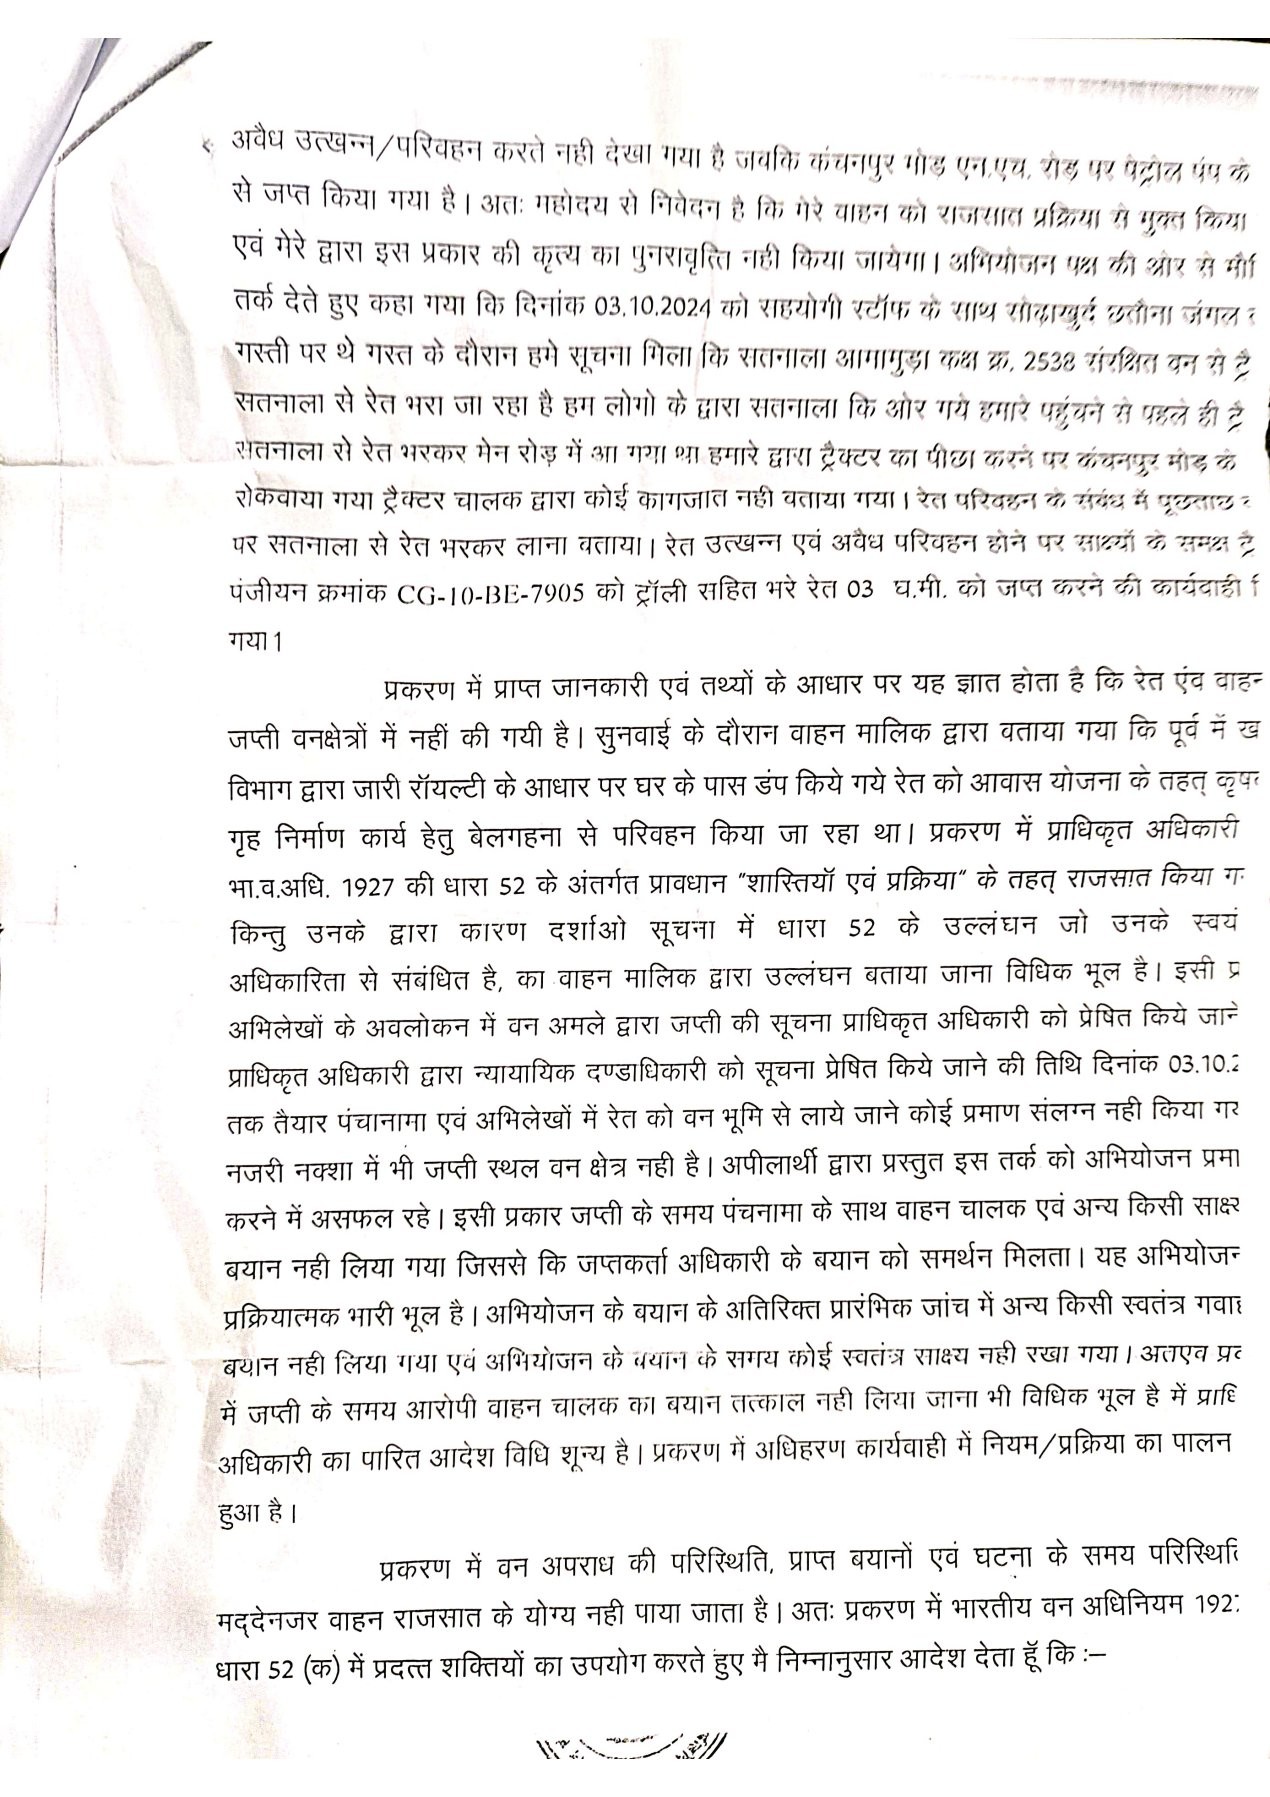 अवैध उत्खन्न/परिवहन करते नही देखा गया है जबकि कंचनपुर मोड़ एन.एच. रोड़ पर पेट्रोल पंप के
से जप्त किया गया है। अतः महोदय से निवेदन है कि मेरे वाहन को राजसात प्रक्रिया से मुक्त किया
एवं मेरे द्वारा इस प्रकार की कृत्य का पुनरावृत्ति नही किया जायेगा। अभियोजन पक्ष की ओर से
तर्क देते हुए कहा गया कि दिनांक 03.10.2024 को सहयोगी स्टॉफ के साथ सोढ़ाखुर्द छतौना जंगल
गस्ती पर थे गस्त के दौरान हमे सूचना मिला कि सतनाला आमामुड़ा कक्ष क्र. 2538 संरक्षित वन से
सतनाला से रेत भरा जा रहा है हम लोगो के द्वारा सतनाला कि ओर गये हमारे पहुंचने से पहले ही
सतनाला से रेत भरकर मेन रोड़ में आ गया था हमारे द्वारा ट्रैक्टर का पीछा करने पर कंचनपुर मोड़ के
रोकवाया गया ट्रैक्टर चालक द्वारा कोई कागजात नही बताया गया। रेत परिवहन के संबंध में पूछताछ
पर सतनाला से रेत भरकर लाना बताया। रेत उत्खन्न एवं अवैध परिवहन होने पर साक्ष्यों के समक्ष
पंजीयन क्रमांक CG-10-BE-7905 को ट्रॉली सहित भरे रेत 03 घ.मी. को जप्त करने की कार्यवाही
गया1
प्रकरण में प्राप्त जानकारी एवं तथ्यों के आधार पर यह ज्ञात होता है कि रेत एंव वाहन
जप्ती वनक्षेत्रों में नहीं की गयी है। सुनवाई के दौरान वाहन मालिक द्वारा बताया गया कि पूर्व में
विभाग द्वारा जारी रॉयल्टी के आधार पर घर के पास डंप किये गये रेत को आवास योजना के तहत्
गृह निर्माण कार्य हेतु बेलगहना से परिवहन किया जा रहा था। प्रकरण में प्राधिकृत अधिकारी
भा.व.अधि. 1927 की धारा 52 के अंतर्गत प्रावधान "शास्तियॉ एवं प्रक्रिया" के तहत् राजसात किया
किन्तु उनके द्वारा कारण दर्शाओ सूचना में धारा 52 के उल्लंघन जो उनके स्वयं
अधिकारिता से संबंधित है, का वाहन मालिक द्वारा उल्लंघन बताया जाना विधिक भूल है। इसी
अभिलेखों के अवलोकन में वन अमले द्वारा जप्ती की सूचना प्राधिकृत अधिकारी को प्रेषित किये जाने
प्राधिकृत अधिकारी द्वारा न्यायायिक दण्डाधिकारी को सूचना प्रेषित किये जाने की तिथि दिनांक 03.10.2
तक तैयार पंचानामा एवं अभिलेखों में रेत को वन भूमि से लाये जाने कोई प्रमाण संलग्न नही किया
नजरी नक्शा में भी जप्ती स्थल वन क्षेत्र नही है। अपीलार्थी द्वारा प्रस्तुत इस तर्क को अभियोजन
करने में असफल रहे। इसी प्रकार जप्ती के समय पंचनामा के साथ वाहन चालक एवं अन्य किसी
बयान नही लिया गया जिससे कि जप्तकर्ता अधिकारी के बयान को समर्थन मिलता। यह अभियोजन
प्रक्रियात्मक भारी भूल है। अभियोजन के बयान के अतिरिक्त प्रारंभिक जांच में अन्य किसी स्वतंत्र गवाह
बयान नही लिया गया एवं अभियोजन के बयान के समय कोई स्वतंत्र साक्ष्य नही रखा गया। अतएव
में जप्ती के समय आरोपी वाहन चालक का बयान तत्काल नही लिया जाना भी विधिक भूल है में
अधिकारी का पारित आदेश विधि शून्य है। प्रकरण में अधिहरण कार्यवाही में नियम/प्रक्रिया का पालन
हुआ है।
प्रकरण में वन अपराध की परिस्थिति, प्राप्त बयानों एवं घटना के समय परिस्थिति
मद्देनजर वाहन राजसात के योग्य नही पाया जाता है। अतः प्रकरण में भारतीय वन अधिनियम 1927
धारा 52 (क) में प्रदत्त शक्तियों का उपयोग करते हुए मै निम्नानुसार आदेश देता हूॅ कि :–